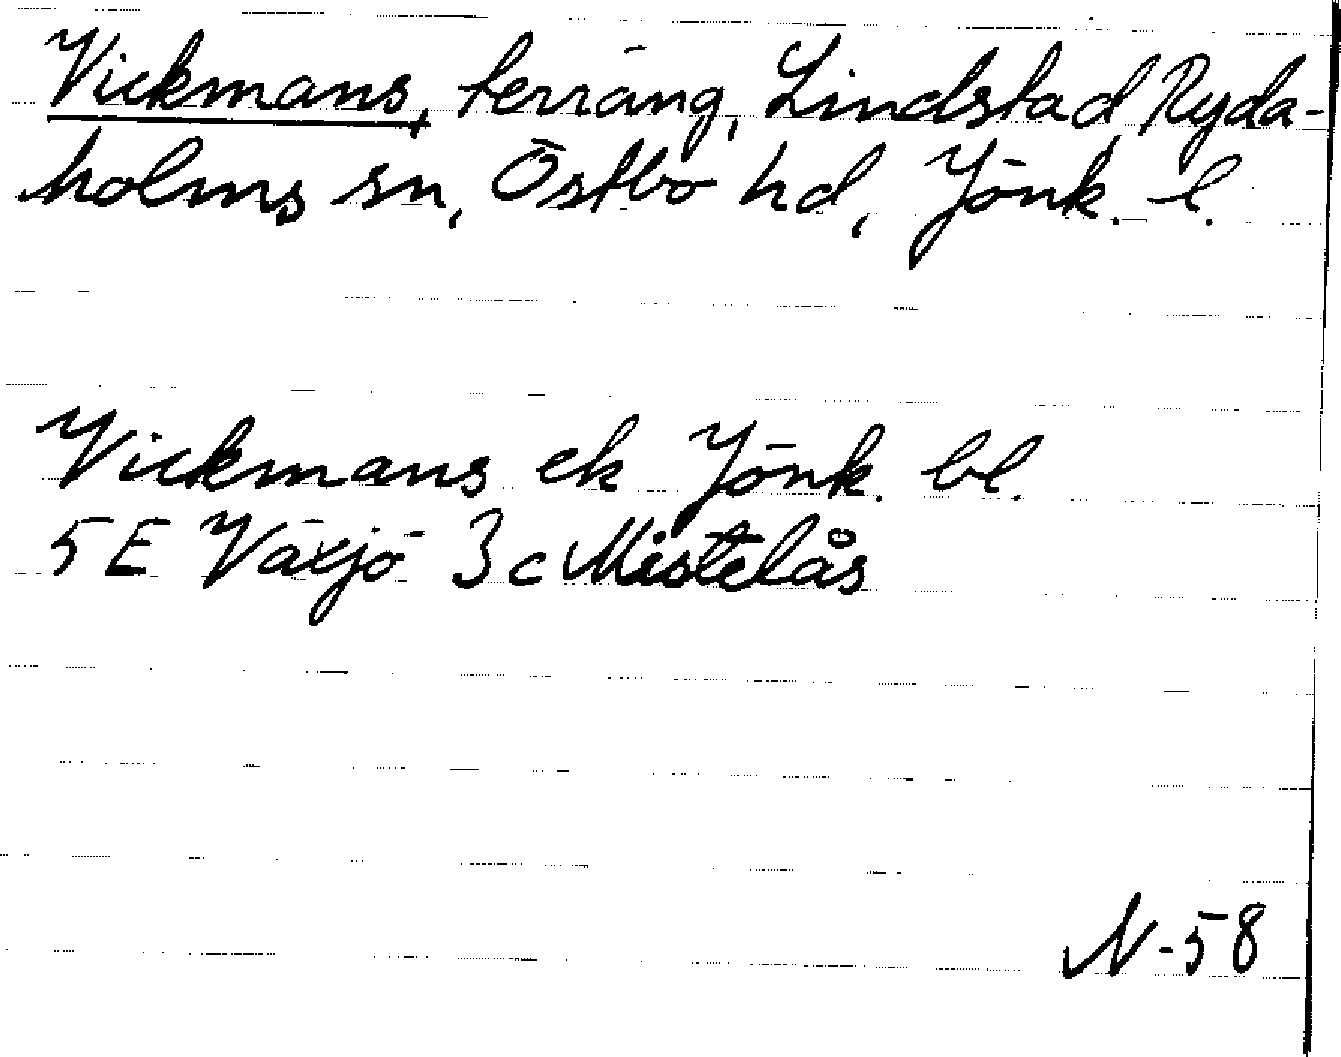 Vickmans, terräng, Lindstad, Ryda-
holms sn, Östbo hd, Jönk. l.
Vickmans ek Jönk. bl.
5E Växjö 3c Mistelås
N-58